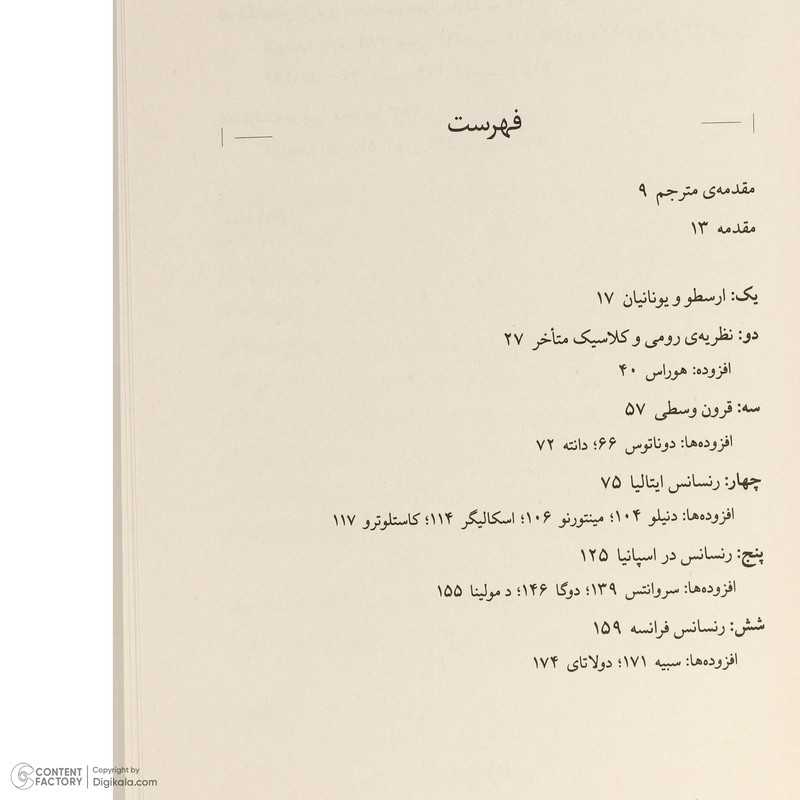 فهرست
مقدمه‌ی مترجم ۹
مقدمه ۱۳
یک: ارسطو و یونانیان ۱۷
دو: نظریه‌ی رومی و کلاسیک متأخر ۲۷
افزوده: هوراس ۴۰
سه: قرون وسطی ۵۷
افزوده‌ها: دوناتوس ۶۶؛ دانته ۷۲
چهار: رنسانس ایتالیا ۷۵
افزوده‌ها: دنیلو ۱۰۴؛ مینتورنو ۱۰۶؛ اسکالیگر ۱۱۴؛ کاستلوترو ۱۱۷
پنج: رنسانس در اسپانیا ۱۲۵
افزوده‌ها: سروانتس ۱۳۹؛ دوگا ۱۴۶؛ د مولینا ۱۵۵
شش: رنسانس فرانسه ۱۵۹
افزوده‌ها: سبیه ۱۷۱؛ دولاتای ۱۷۴
CONTENT FACTORY
Copyright by
Digikala.com